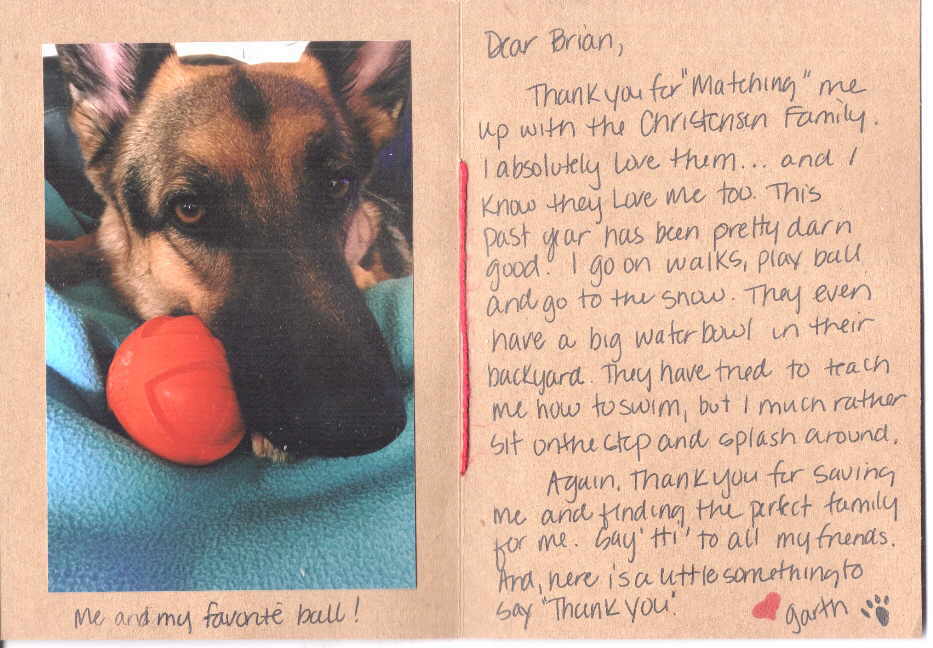 Dear Brian,
Thank you for "Matching" me
up with the Christensen Family.
I absolutely love them... and I
know they love me too. This
past year has been pretty darn
good! I go on walks, play ball
and go to the snow. They even
have a big water bowl in their
backyard. They have tried to teach
me how to swim, but I much rather
sit on the step and splash around.
Again, Thank you for saving
me and finding the perfect family
for me. Say "Hi" to all my friends.
And, here is a little something to
say "Thank you".
garth
Me and my favorite ball!